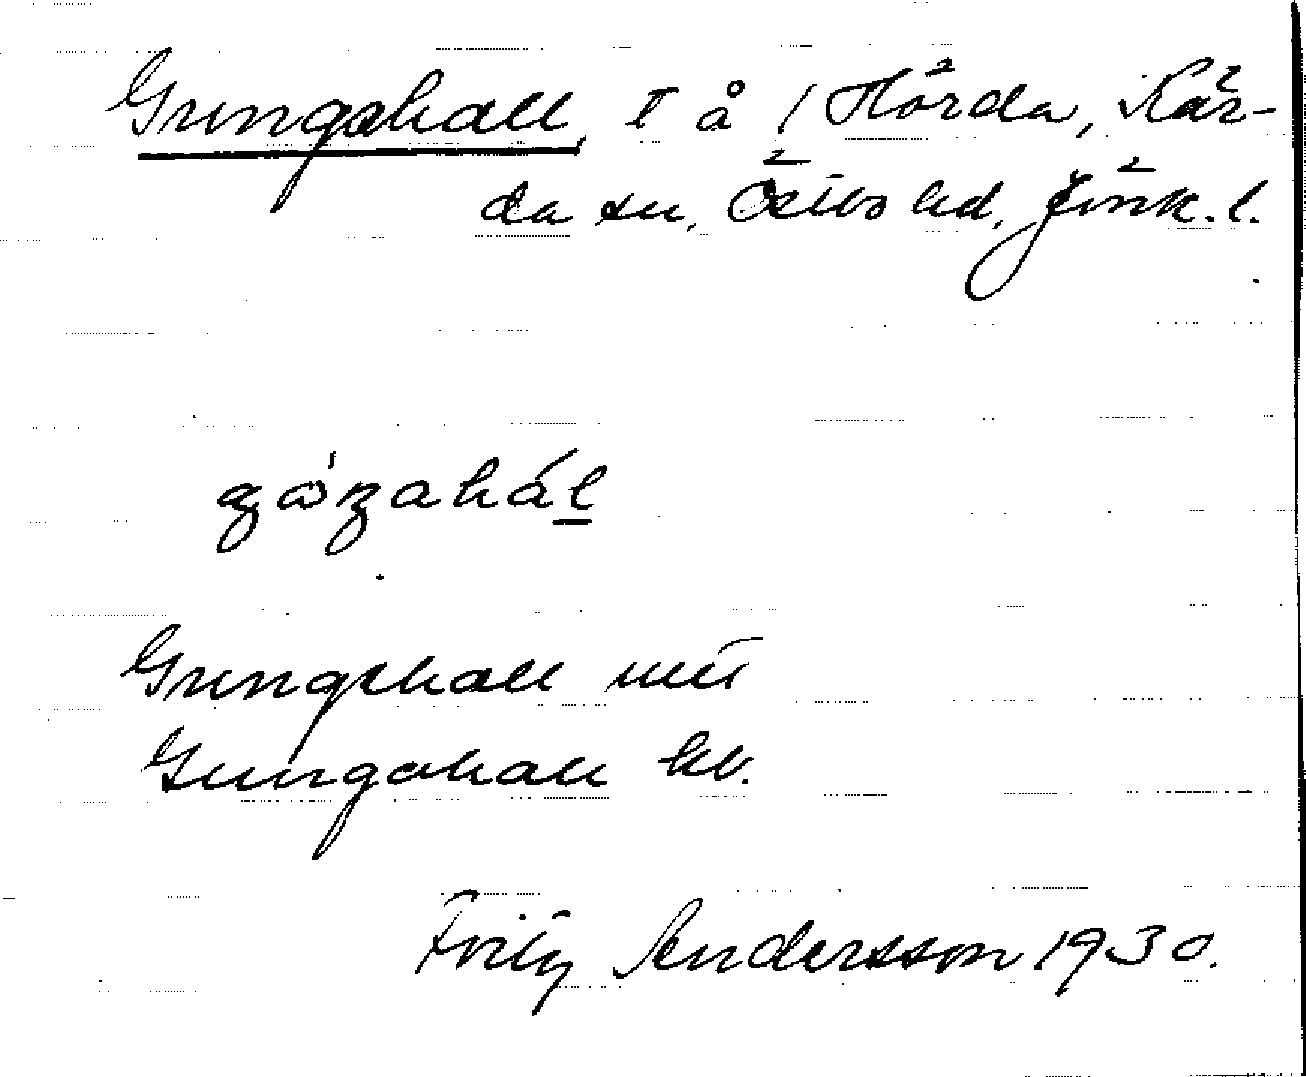 Grungahall, I å / Hörda, Kär-
da sn, Östbo hd, Jönk. l.
Grungehall
Gungahall kb.
Fritz Andersson 1930.